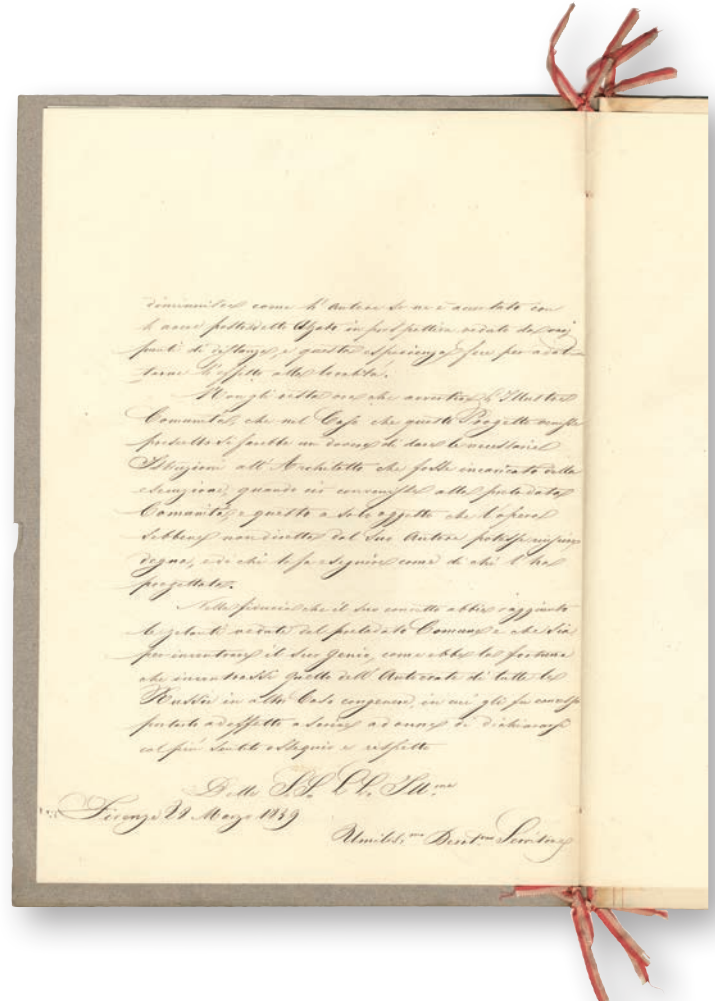 come l'Autore se ne è accertato con
in prospettiva veduto da
punti di distanza, e questa esperienza fece per adat-
tarne l'effetto alla località.
Non gli resta ora che avvertire l'Illustre
Comunità, che nel Caso che questo Progetto venisse
prescelto si farebbe un dovere di dare le necessarie
Istruzioni all'Architetto che fosse incaricato della
esecuzione, quando ciò convenisse alla prelodata
Comunità, e questo a solo oggetto che l'opera
sebbene non diretta dal suo Autore potesse
degna, e di chi la fa eseguire come di chi l'ha
progettata.
Nella fiducia che il suo concetto abbia raggiunto
le zelanti vedute del prelodato Comune e che sia
per incontrare il suo genio, come ebbe la fortuna
che incontrasse quello dell'Autocrate di tutte le
Russie in altro Caso congenere, in cui gli fu concesso
portarlo ad effetto ascrive ad onore di dichiararsi
col più sentito ossequio e rispetto
Delle S.S. L.L. Ill.me
Firenze 28 Marzo 1859
Umiliss.mo Devot.mo Servitore